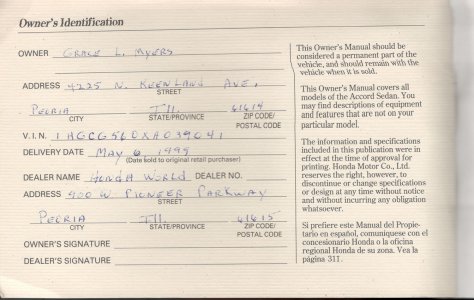 Owner's Identification
OWNER GRACE L. MYERS
ADDRESS 4225 N. KEENLAND AVE,
STREET
PEORIA Ill. 61614
CITY STATE/PROVINCE ZIP CODE/
POSTAL CODE
V.I.N. 1HGCG560XXA039041
DELIVERY DATE MAY 6, 1999
(Date sold to original retail purchaser)
DEALER NAME HONDA WORLD DEALER NO.
ADDRESS 900 W. PIONEER PARKWAY
STREET
PEORIA Ill. 61615
CITY STATE/PROVINCE ZIP CODE/
POSTAL CODE
OWNER'S SIGNATURE
DEALER'S SIGNATURE
This Owner's Manual should be
considered a permanent part of the
vehicle, and should remain with the
vehicle when it is sold.
This Owner's Manual covers all
models of the Accord Sedan. You
may find descriptions of equipment
and features that are not on your
particular model.
The information and specifications
included in this publication were in
effect at the time of approval for
printing. Honda Motor Co., Ltd.
reserves the right, however, to
discontinue or change specifications
or design at any time without notice
and without incurring any obligation
whatsoever.
Si prefiere este Manual del Propie-
tario en español, comuníquese con el
concesionario Honda o la oficina
regional Honda de su zona. Vea la
página 311.